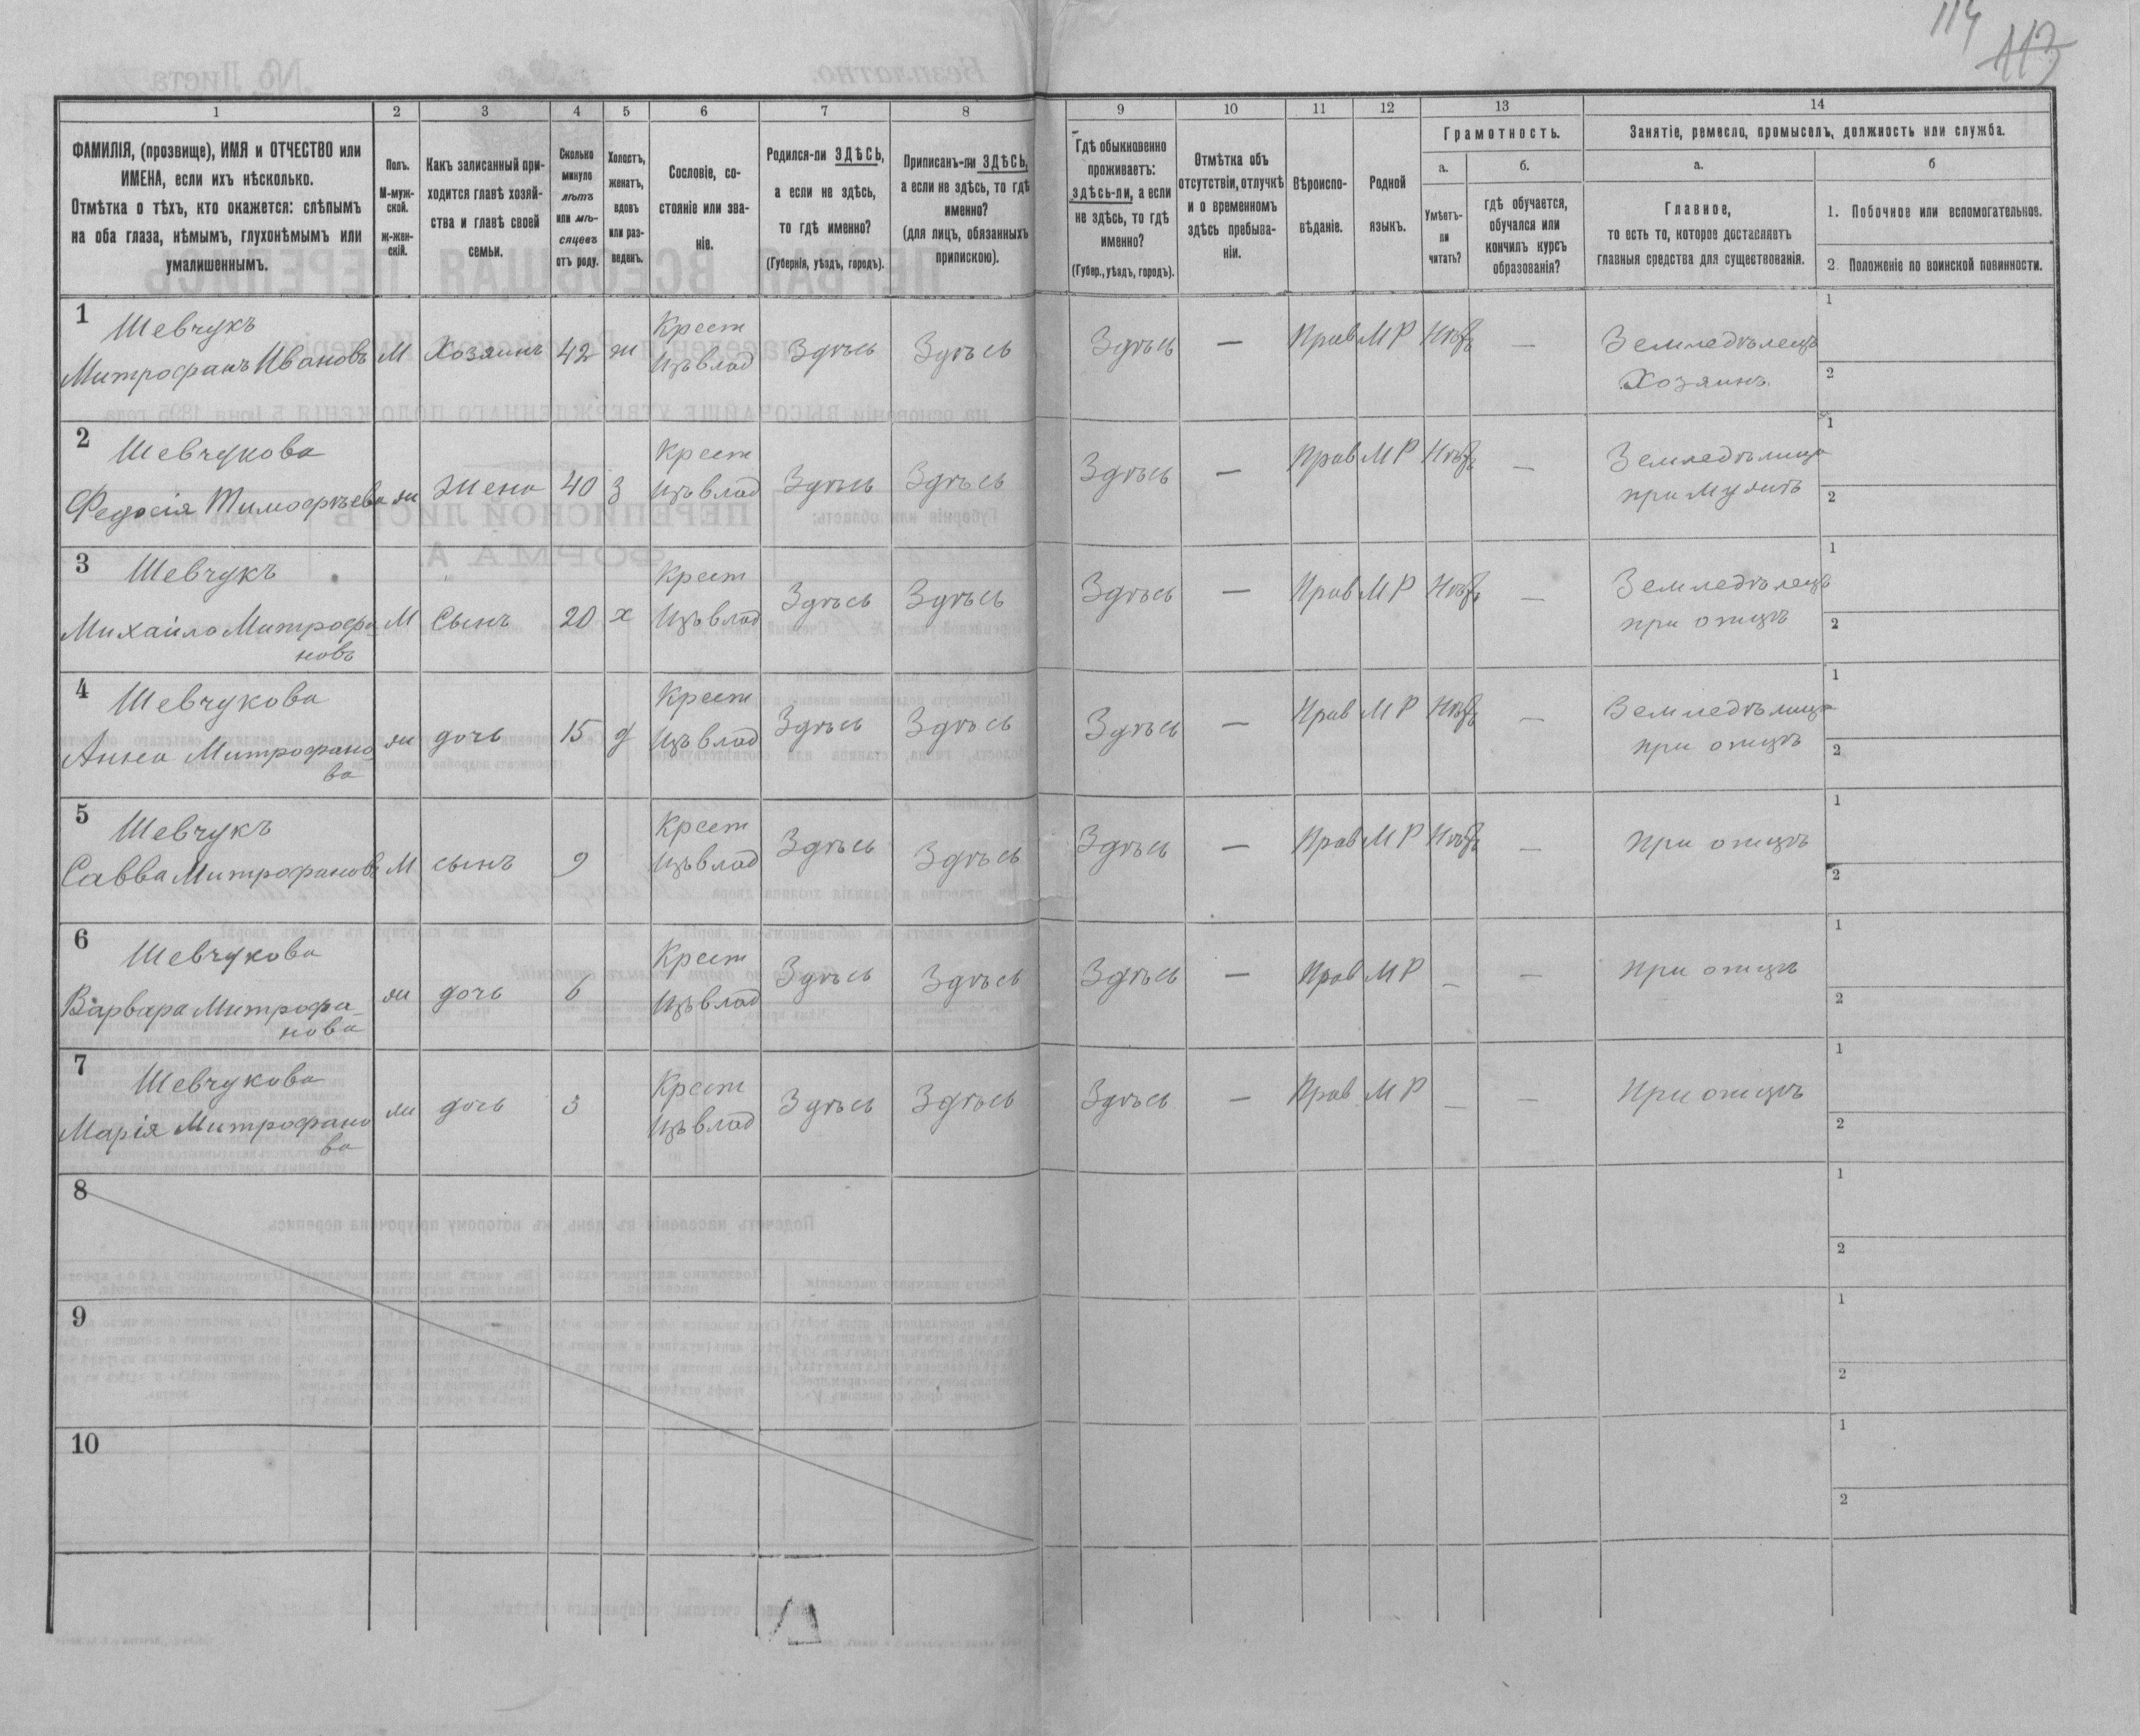 114
113
1 2 3 4 5 6 7 8 9 10 11 12 13 14
ФАМИЛІЯ, (прозвище), ИМЯ и ОТЧЕСТВО или
ИМЕНА, если ихъ нѣсколько.
Отмѣтка о тѣхъ, кто окажется: слѣпымъ
на оба глаза, нѣмымъ, глухонѣмымъ или
умалишеннымъ.
Полъ.
М-муж-
ской.
ж-жен-
скій.
Какъ записанный при-
ходится главѣ хозяй-
ства и главѣ своей
семьи.
Сколько
минуло
лѣтъ
или мѣ-
сяцевъ
отъ роду.
Холостъ,
женатъ,
вдовъ
или раз-
веденъ.
Сословіе, со-
стояніе или зва-
ніе.
Родился-ли ЗДѢСЬ,
а если не здѣсь,
то гдѣ именно?
(Губернія, уѣздъ, городъ).
Приписанъ-ли ЗДѢСЬ,
а если не здѣсь, то гдѣ
именно?
(для лицъ, обязанныхъ
припискою).
Гдѣ обыкновенно
проживаетъ:
здѣсь-ли, а если
не здѣсь, то гдѣ
именно?
(Губер., уѣздъ, городъ).
Отмѣтка объ
отсутствіи, отлучкѣ
и о временномъ
здѣсь пребыва-
ніи.
Вѣроиспо-
вѣданіе.
Родной
языкъ.
Грамотность.
а.
Умѣетъ-
ли
читать?
б.
гдѣ обучается,
обучался или
кончилъ курсъ
образованія?
Занятіе, ремесло, промыселъ, должность или служба.
а.
Главное,
то есть то, которое доставляетъ
главныя средства для существованія.
б
1. Побочное или вспомогательное.
2. Положеніе по воинской повинности.
1
Шевчукъ
Митрофанъ Ивановъ М Хозяинъ 42 ж Крест Изъ влад Здѣсь Здѣсь Здѣсь — Прав МР Нѣтъ — Земледѣлецъ
Хозяинъ
1
2
2
Шевчукова
Федосія Тимофѣева ж Жена 40 з Крест Изъ влад Здѣсь Здѣсь Здѣсь — Прав МР Нѣтъ — Земледѣлица
при мужѣ
1
2
3
Шевчукъ
Михаило Митрофа
новъ М Сынъ 20 х Крест Изъ влад Здѣсь Здѣсь Здѣсь — Прав МР Нѣтъ — Земледѣлецъ
при отцѣ
1
2
4
Шевчукова
Анна Митрофано
ва ж дочь 15 д Крест Изъ влад Здѣсь Здѣсь Здѣсь — Прав МР Нѣтъ — Земледѣлица
при отцѣ
1
2
5
Шевчукъ
Савва Митрофановъ М сынъ 9 Крест Изъ влад Здѣсь Здѣсь Здѣсь — Прав МР Нѣтъ — При отцѣ
1
2
6
Шевчукова
Варвара Митрофа
нова ж дочь 6 Крест Изъ влад Здѣсь Здѣсь Здѣсь — Прав МР — — При отцѣ
1
2
7
Шевчукова
Марія Митрофано
ва ж дочь 3 Крест Изъ влад Здѣсь Здѣсь Здѣсь — Прав МР — — При отцѣ
1
2
8
1
2
9
1
2
10
1
2